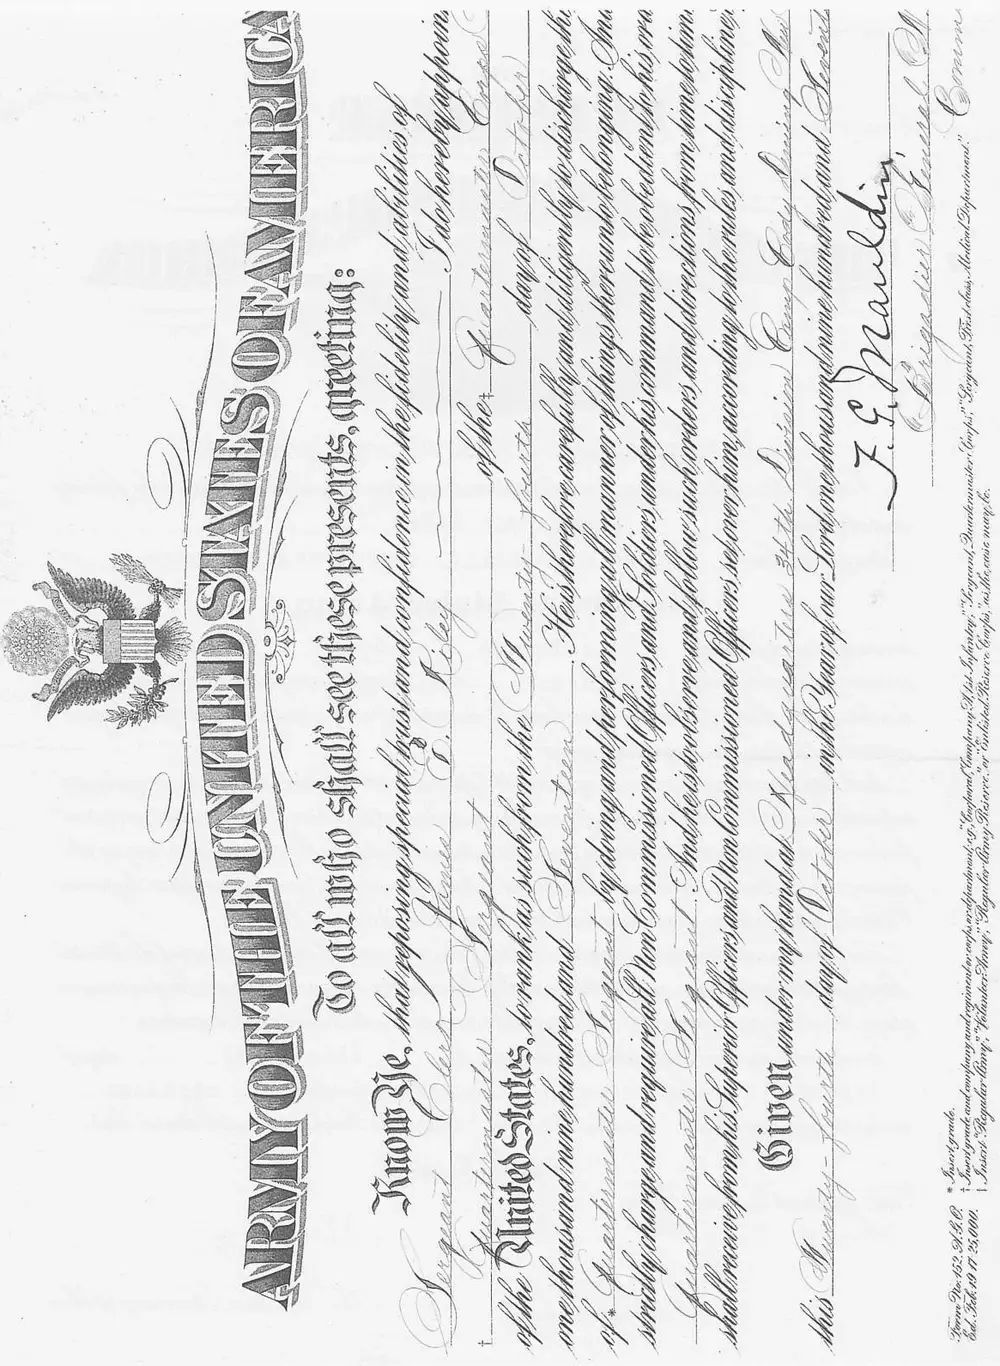 ARMY OF THE UNITED STATES OF AMERICA
To all who shall see these presents, greeting:
Know Ye, that reposing special trust and confidence in the fidelity and abilities of
Sergeant Clerk James D. Kiley I do hereby appoin
† Quartermaster Sergeant of the ‡ Quartermaster Corps
of the United States, to rank as such from the Twenty fourth day of October
one thousand nine hundred and Seventeen. He is therefore carefully and diligently to discharge th
of * Quartermaster Sergeant by doing and performing all manner of things thereunto belonging. And
strictly charge and require all Non Commissioned Officers and Soldiers under his command to be obedient to his ord
Quartermaster Sergeant. And he is to observe and follow such orders and directions from time to time
shall receive from his Superior Officers and Non Commissioned Officers set over him, according to the rules and discipline
Given under my hand at Headquarters 34th Division Camp Cody Deming New
this Twenty-fourth day of October in the Year of our Lord one thousand nine hundred and Sevent
F. G. Mauldin
Brigadier General N.
Form No. 152, A.G.O. * Insert grade.
Ed. Feb. 19-17-25,000. † Insert grade and company and regiment or corps or department; e.g., "Corporal, Company A, First Infantry," "Sergeant, Quartermaster Corps," "Sergeant, First class, Medical Department."
‡ Insert "Regular Army," "Volunteer Army," "Regular Army Reserve," or "Enlisted Reserve Corps," as the case may be.